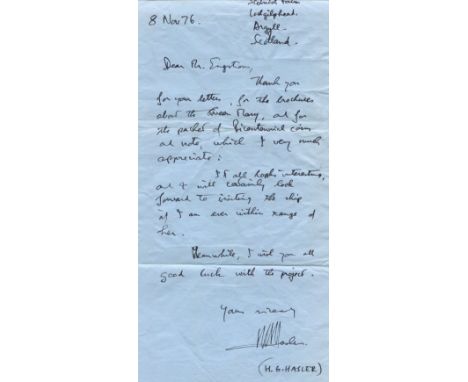 8 Nov 76.
Lochgilphead.
Argyll.
Scotland.
Dear Mr. Engstrom,
Thank you
for your letter, for the brochures
about the Queen Mary, and for
the packet of Bicentennial coins
and note, which I very much
appreciate.
It all looks interesting,
and I will certainly look
forward to visiting the ship
if I am ever within range of
her.
Meanwhile, I wish you all
good luck with the project.
Yours sincerely
(H.G. HASLER)